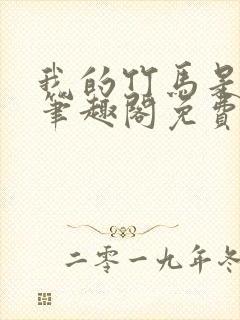 我的竹馬是
筆趣閣免費
二零一九年冬